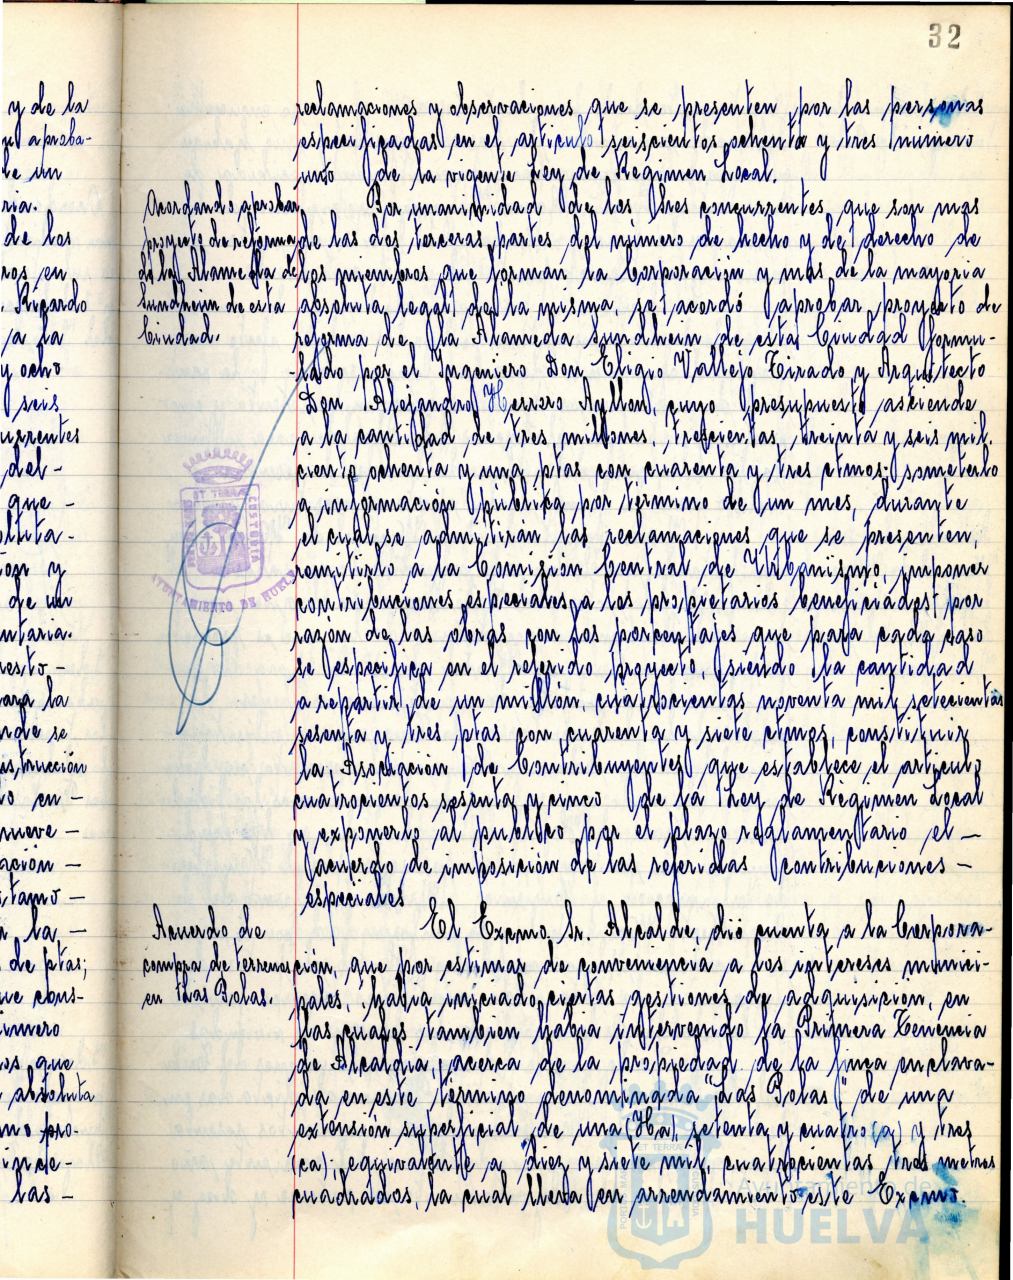 32
y de la
aproba-
de un
ria.
de los
ros en
Ricardo
a la
y ocho
seis
urrentes
del-
que -
de un
ntaria.
uesto-
ara la
nde se
strucción
o en-
nueve-
ación-
stamo-
la-
de ptas;
ue cons-
imero
os que
absoluta
no pro-
las-
reclamaciones y observaciones que se presenten por las personas
especificadas en el articulo seiscientos ochenta y tres número
uno de la vigente Ley de Régimen Local.
Acordando aprobar
proyecto de reforma
de la Alameda de
Sundheim de esta
Ciudad.
Por unanimidad de los Sres concurrentes, que son mas
de las dos terceras partes del número de hecho y de derecho de
los miembros que forman la Corporación y mas de la mayoria
absoluta legal de la misma, se acordó aprobar proyecto de
reforma de la Alameda Sundhein de esta Ciudad formu-
-lado por el Ingeniero Don Eligio Vallejo Tirado y Arquitecto
Don Alejandro Herrero Ayllon, cuyo presupuesto asciende
a la cantidad de tres millones, trescientas treinta y seis mil
ciento ochenta y una ptas con cuarenta y tres ctmos; someterlo
a información pública por término de un mes, durante
el cual se admitirán las reclamaciones que se presenten,
remitirlo a la Comisión Central de Urbanismo, imponer
contribuciones especiales a los propietarios beneficiados por
razón de las obras con los porcentajes que para cada caso
se especifica en el referido proyecto, siendo la cantidad
a repartir de un millón, cuatrocientas noventa mil setecientas
sesenta y tres ptas con cuarenta y siete ctmos, constituir
la Asociación de Contribuyentes que establece el articulo
cuatrocientos sesenta y cinco de la Ley de Régimen Local
y exponerlo al público por el plazo reglamentario el -
acuerdo de imposición de las referidas contribuciones -
especiales
Acuerdo de
compra de terrenos
en Las Bolas.
El Excmo. Sr. Alcalde, dió cuenta a la Corpora-
ción, que por estimar de conveniencia a los intereses munici-
pales, habia iniciado ciertas gestiones de adquisición, en
las cuales tambien habia intervenido la Primera Tenencia
de Alcaldía, acerca de la propiedad de la finca enclava-
da en este término denominada "Las Bolas" de una
extensión superficial de una (Ha), setenta y cuatro (a) y tres
ca); equivalente a diez y siete mil, cuatrocientas tres metros
cuadrados, la cual lleva en arrendamiento este Excmo.
AYUNTAMIENTO DE HUELVA
Ayuntamiento de
HUELVA